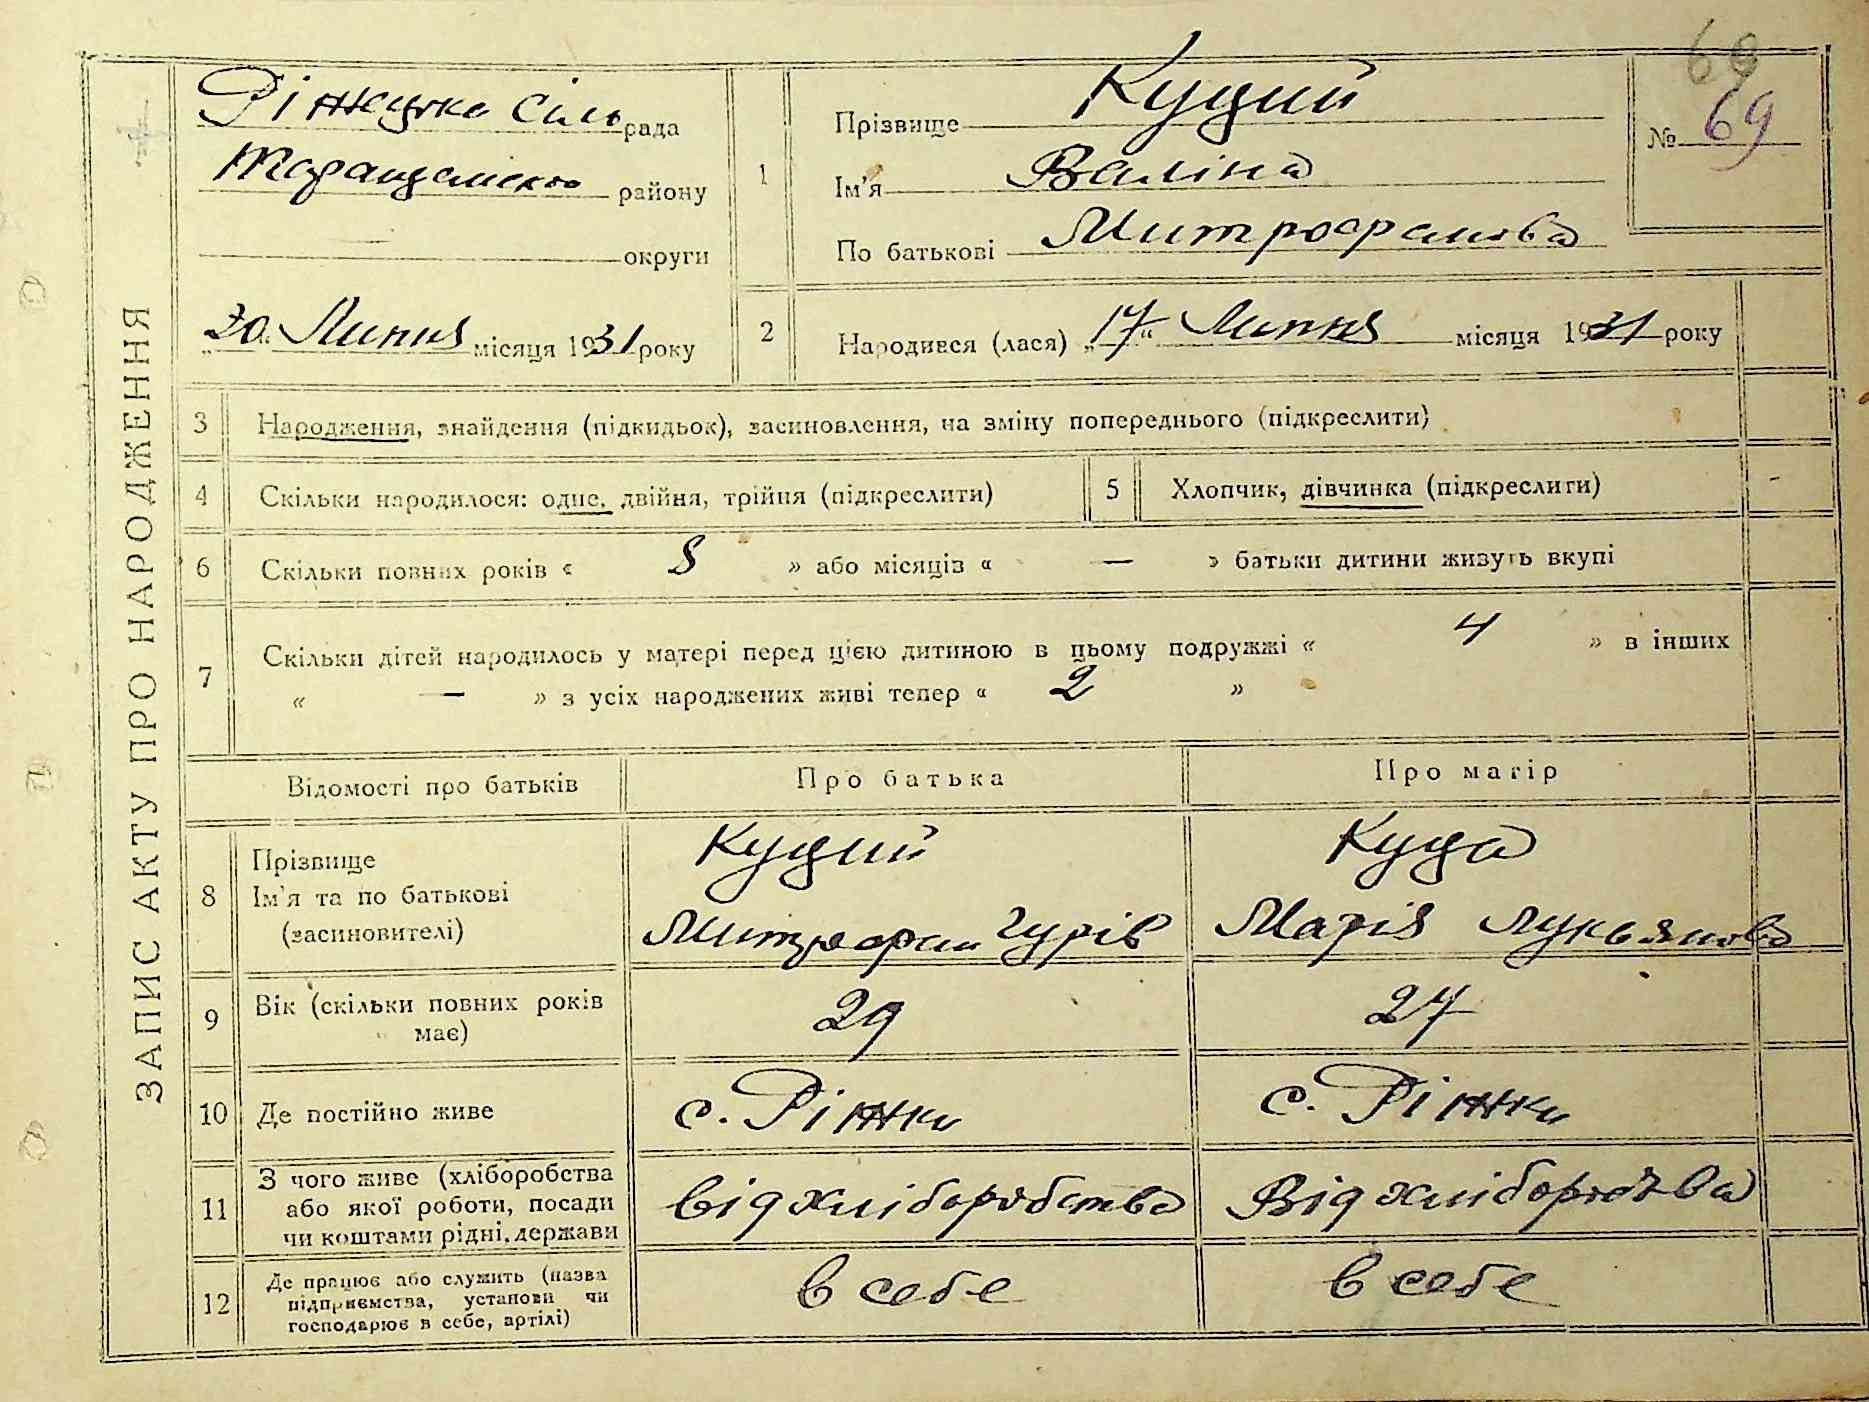 ЗАПИС АКТУ ПРО НАРОДЖЕННЯ
Ріжецька Сіль рада
Таращанського району
округи
„30“ Липня місяця 1931 року
69
№ 69
1
Прізвище Куций
Ім'я Валіна
По батькові Митрофанова
2
Народився (лася) „17“ Липня місяця 1931 року
3 Народження, знайдення (підкидьок), засиновлення, на зміну попереднього (підкреслити)
4 Скільки народилося: одне, двійня, трійня (підкреслити)
5 Хлопчик, дівчинка (підкреслити)
6 Скільки повних років « 8 » або місяців « — » батьки дитини живуть вкупі
7 Скільки дітей народилось у матері перед цією дитиною в цьому подружжі « 4 » в інших
« — » з усіх народжених живі тепер « 2 »
Відомості про батьків Про батька Про матір
8 Прізвище
Ім'я та по батькові
(засиновителі)
Куций
Митрофан Гурів
Куца
Марія Лукьянова
9 Вік (скільки повних років
має)
29
27
10 Де постійно живе
с. Ріжки
с. Ріжки
11 З чого живе (хліборобства
або якої роботи, посади
чи коштами рідні, держави
від хліборобства
Від хліборобства
12 Де працює або служить (назва
підприємства, установи чи
господарює в себе, артілі)
в себе
в себе